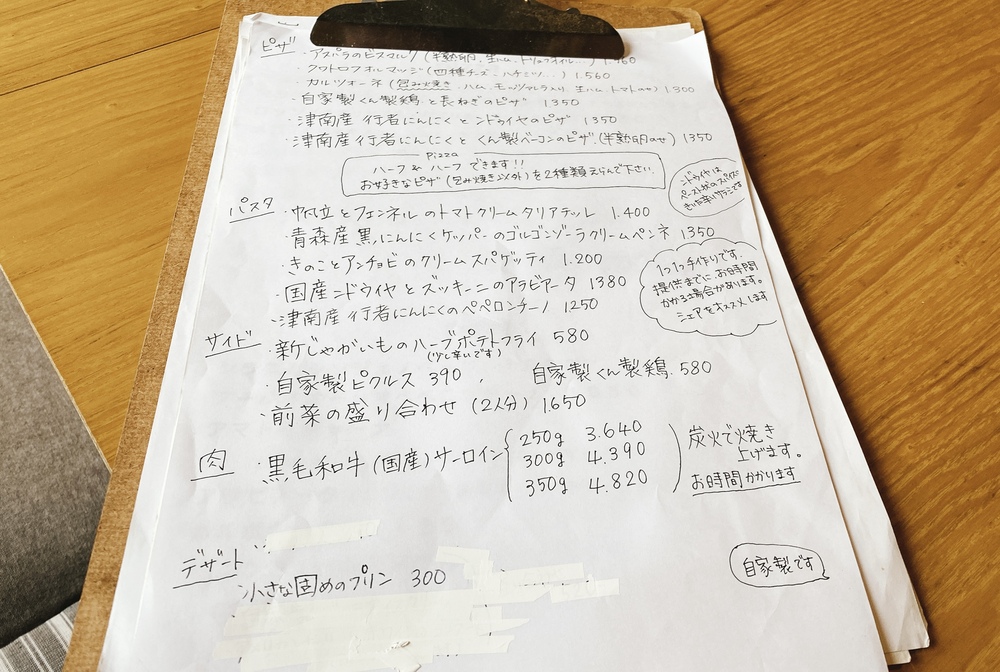 ピザ
・アスパラのビスマルク(半熟卵、生ハム、トリュフオイル...)
・クワトロフォルマッジ(四種チーズ、ハチミツ...) 1.560
・カルツォーネ(包み焼き、ハム、モッツァレラ入り、生ハム、トマトのせ) 1300
・自家製くん製鶏と長ねぎのピザ 1350
・津南産 行者にんにくとンドゥイヤのピザ 1350
・津南産 行者にんにくとくん製ベーコンのピザ.(半熟卵のせ) 1350
Pizza
ハーフ&ハーフできます!!
お好きなピザ(包み焼き以外)を2種類えらんで下さい.
ンドゥイヤは
ペースト状のスパイス
きいた辛いサラミです
パスタ
・帆立とフェンネルのトマトクリームタリアテッレ 1.400
・青森産黒にんにくケッパーのゴルゴンゾーラクリームペンネ 1350
・きのことアンチョビのクリームスパゲッティ 1.200
・国産ンドゥイヤとズッキーニのアラビアータ 1380
・津南産 行者にんにくのペペロンチーノ 1250
1つ1つ手作りです.
提供までに、お時間
かかる場合があります。
シェアをオススメします
サイド
・新じゃがいものハーブポテトフライ 580
(少し辛いです)
・自家製ピクルス 390 . 自家製くん製鶏. 580
・前菜の盛り合わせ(2人分) 1.650
肉
・黒毛和牛(国産)サーロイン
250g 3.640
300g 4.390
350g 4.820
炭火で焼き
上げます。
お時間かかります
デザート
小さな固めのプリン 300
自家製です